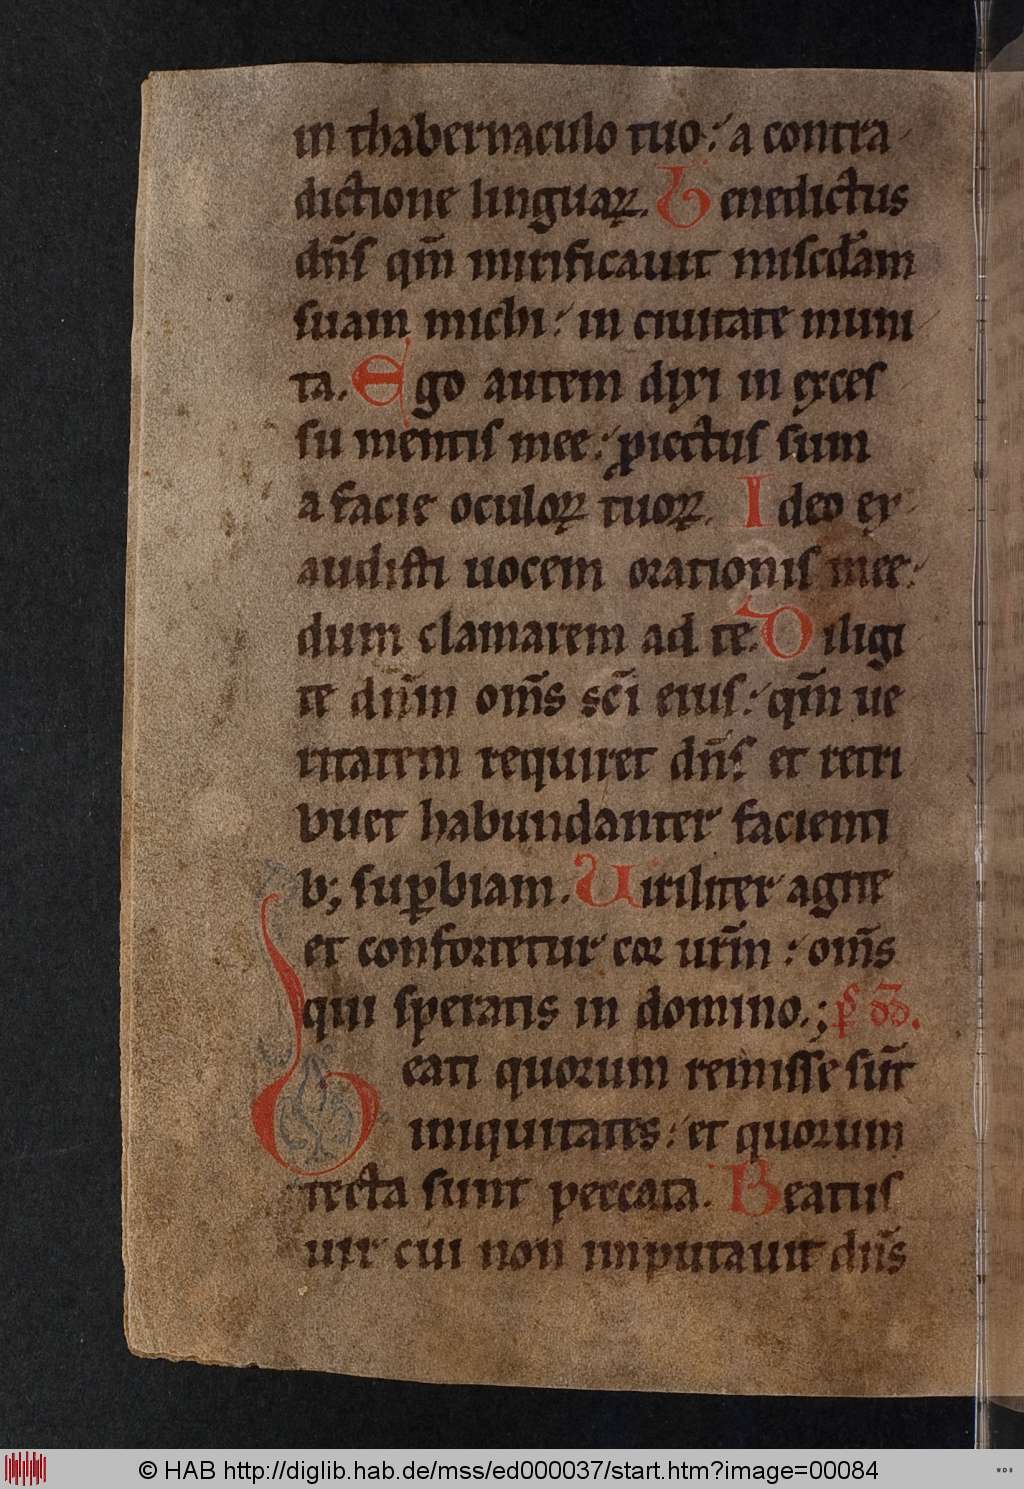 in thabernaculo tuo: a contra
dictione linguaꝝ. Benedictus
dn̄s qm̄ mirificauit misc̄dam
suam michi: in ciuitate muni
ta. Ego autem dixi in exces
su mentis mee: ꝓiectus sum
a facie oculoꝝ tuoꝝ. Ideo ex
audisti uocem orationis mee:
dum clamarem ad te. Diligi
te dnm̄ om̄s sc̄i eius: qm̄ ue
ritatem requiret dn̄s et retri
buet habundanter facienti
b; suꝑbiam. Uiriliter agite
et confortetur cor urm̄: om̄s
qui speratis in domino.;
Beati quorum remisse sūt
iniquitates: et quorum
tecta sunt peccata. Beatus
uir cui non imputauit dn̄s
© HAB http://diglib.hab.de/mss/ed000037/start.htm?image=00084